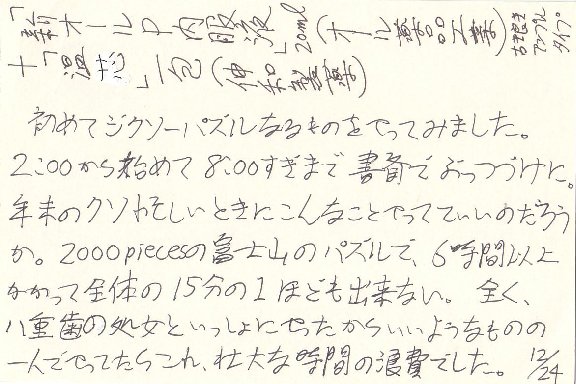 「新オールP内服液」20ml(オール薬品工業)古銭型アンプルタイプ
十「温形」一包(伸和製薬)
初めてジグソーパズルなるものをやってみました。
2:00から始めて8:00すぎまで書斎でぶっつづけに。
年末のクソ忙しいときにこんなことやってていいのだろう
か。2000piecesの富士山のパズルで、6時間以上
かかって全体の15分の1ほども出来ない。全く、
八重歯の処女といっしょにやったからいいようなものの
一人でやってたらこれ、壮大な時間の浪費でした。12/24